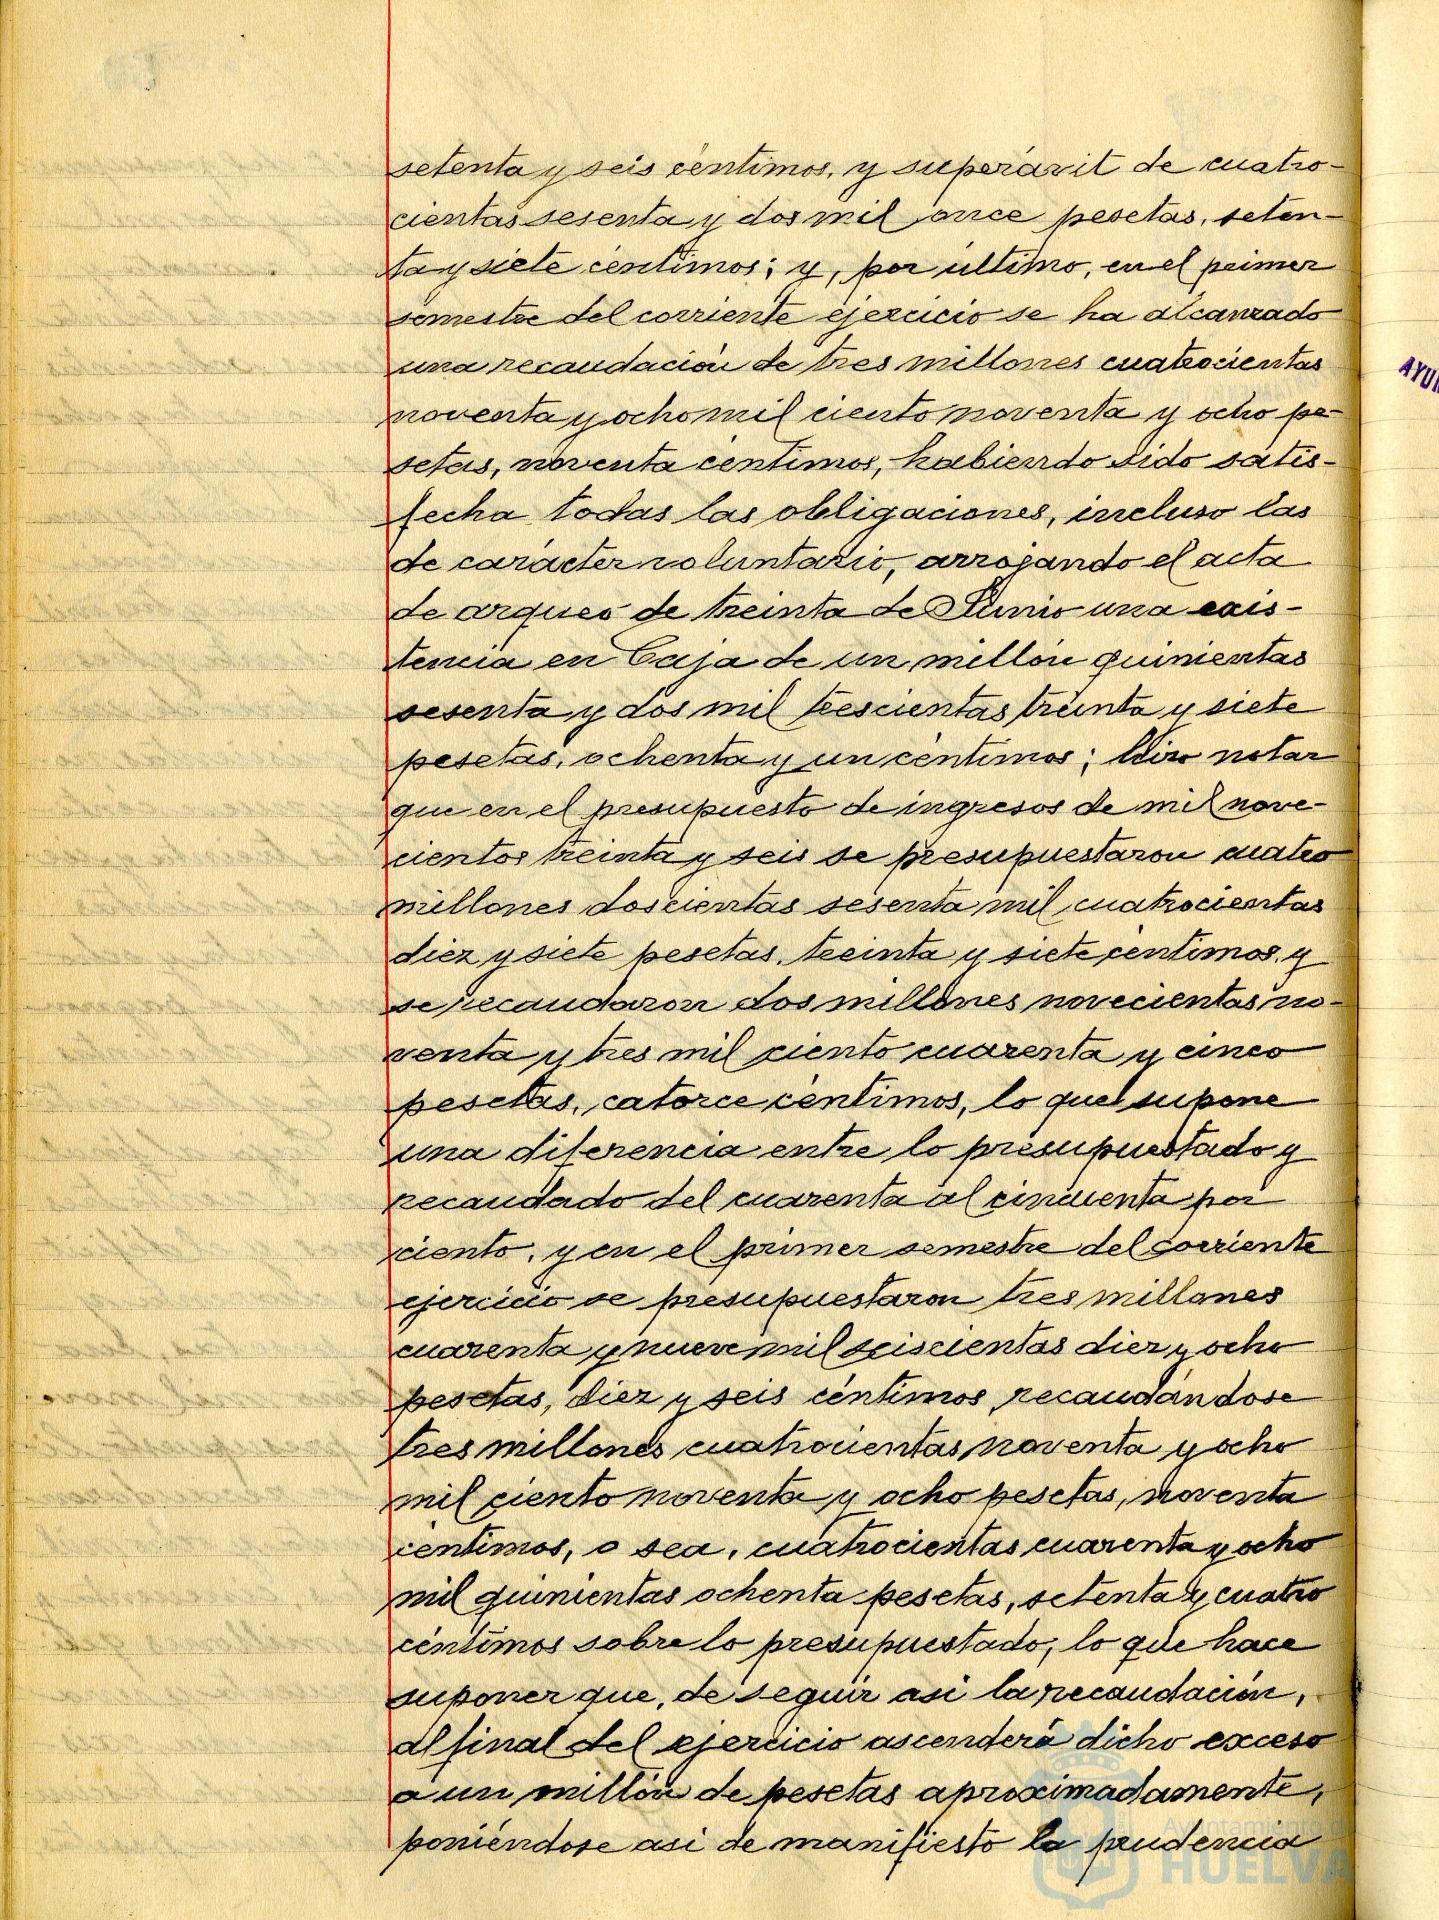 setenta y seis céntimos, y superávit de cuatro-
cientas sesenta y dos mil once pesetas, seten-
ta y siete céntimos; y, por último, en el primer
semestre del corriente ejercicio se ha alcanzado
una recaudación de tres millones cuatrocientas
noventa y ocho mil ciento noventa y ocho pe-
setas, noventa céntimos, habiendo sido satis-
fecha todas las obligaciones, incluso las
de carácter voluntario, arrojando el acta
de arqueo de treinta de Junio una exis-
tencia en Caja de un millón quinientas
sesenta y dos mil trescientas treinta y siete
pesetas, ochenta y un céntimos; hizo notar
que en el presupuesto de ingresos de mil nove-
cientos treinta y seis se presupuestaron cuatro
millones doscientas sesenta mil cuatrocientas
diez y siete pesetas, treinta y siete céntimos, y
se recaudaron dos millones novecientas no-
venta y tres mil ciento cuarenta y cinco
pesetas, catorce céntimos, lo que supone
una diferencia entre lo presupuestado y
recaudado del cuarenta al cincuenta por
ciento, y en el primer semestre del corriente
ejercicio se presupuestaron tres millones
cuarenta y nueve mil seiscientas diez y ocho
pesetas, diez y seis céntimos, recaudándose
tres millones cuatrocientas noventa y ocho
mil ciento noventa y ocho pesetas, noventa
céntimos, o sea, cuatrocientas cuarenta y ocho
mil quinientas ochenta pesetas, setenta y cuatro
céntimos sobre lo presupuestado, lo que hace
suponer que, de seguir asi la recaudación,
al final del ejercicio ascenderá dicho exceso
a un millón de pesetas aproximadamente,
poniéndose asi de manifiesto la prudencia
Ayuntamiento de
HUELVA